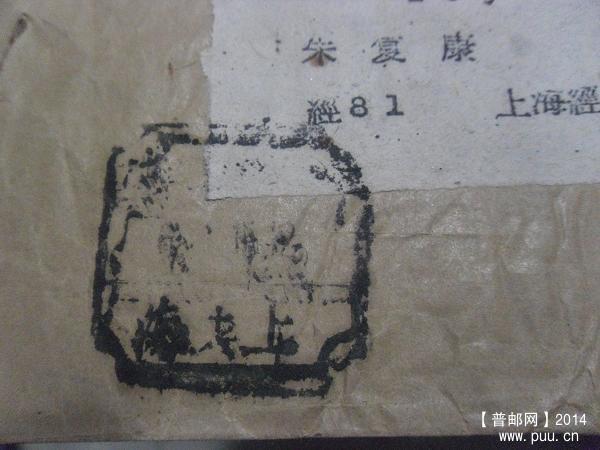 朱复康
經81 上海經
上海
【普邮网】2014
www.puu.cn